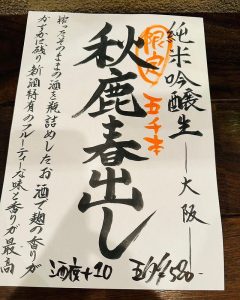 純米吟醸生―大阪―
限定五千本
秋鹿春出し
搾ったそのままの酒を瓶詰めしたお酒で麹の香りが
かすかに残り新酒特有のフルーティーな味と香りが最高
酒度+20